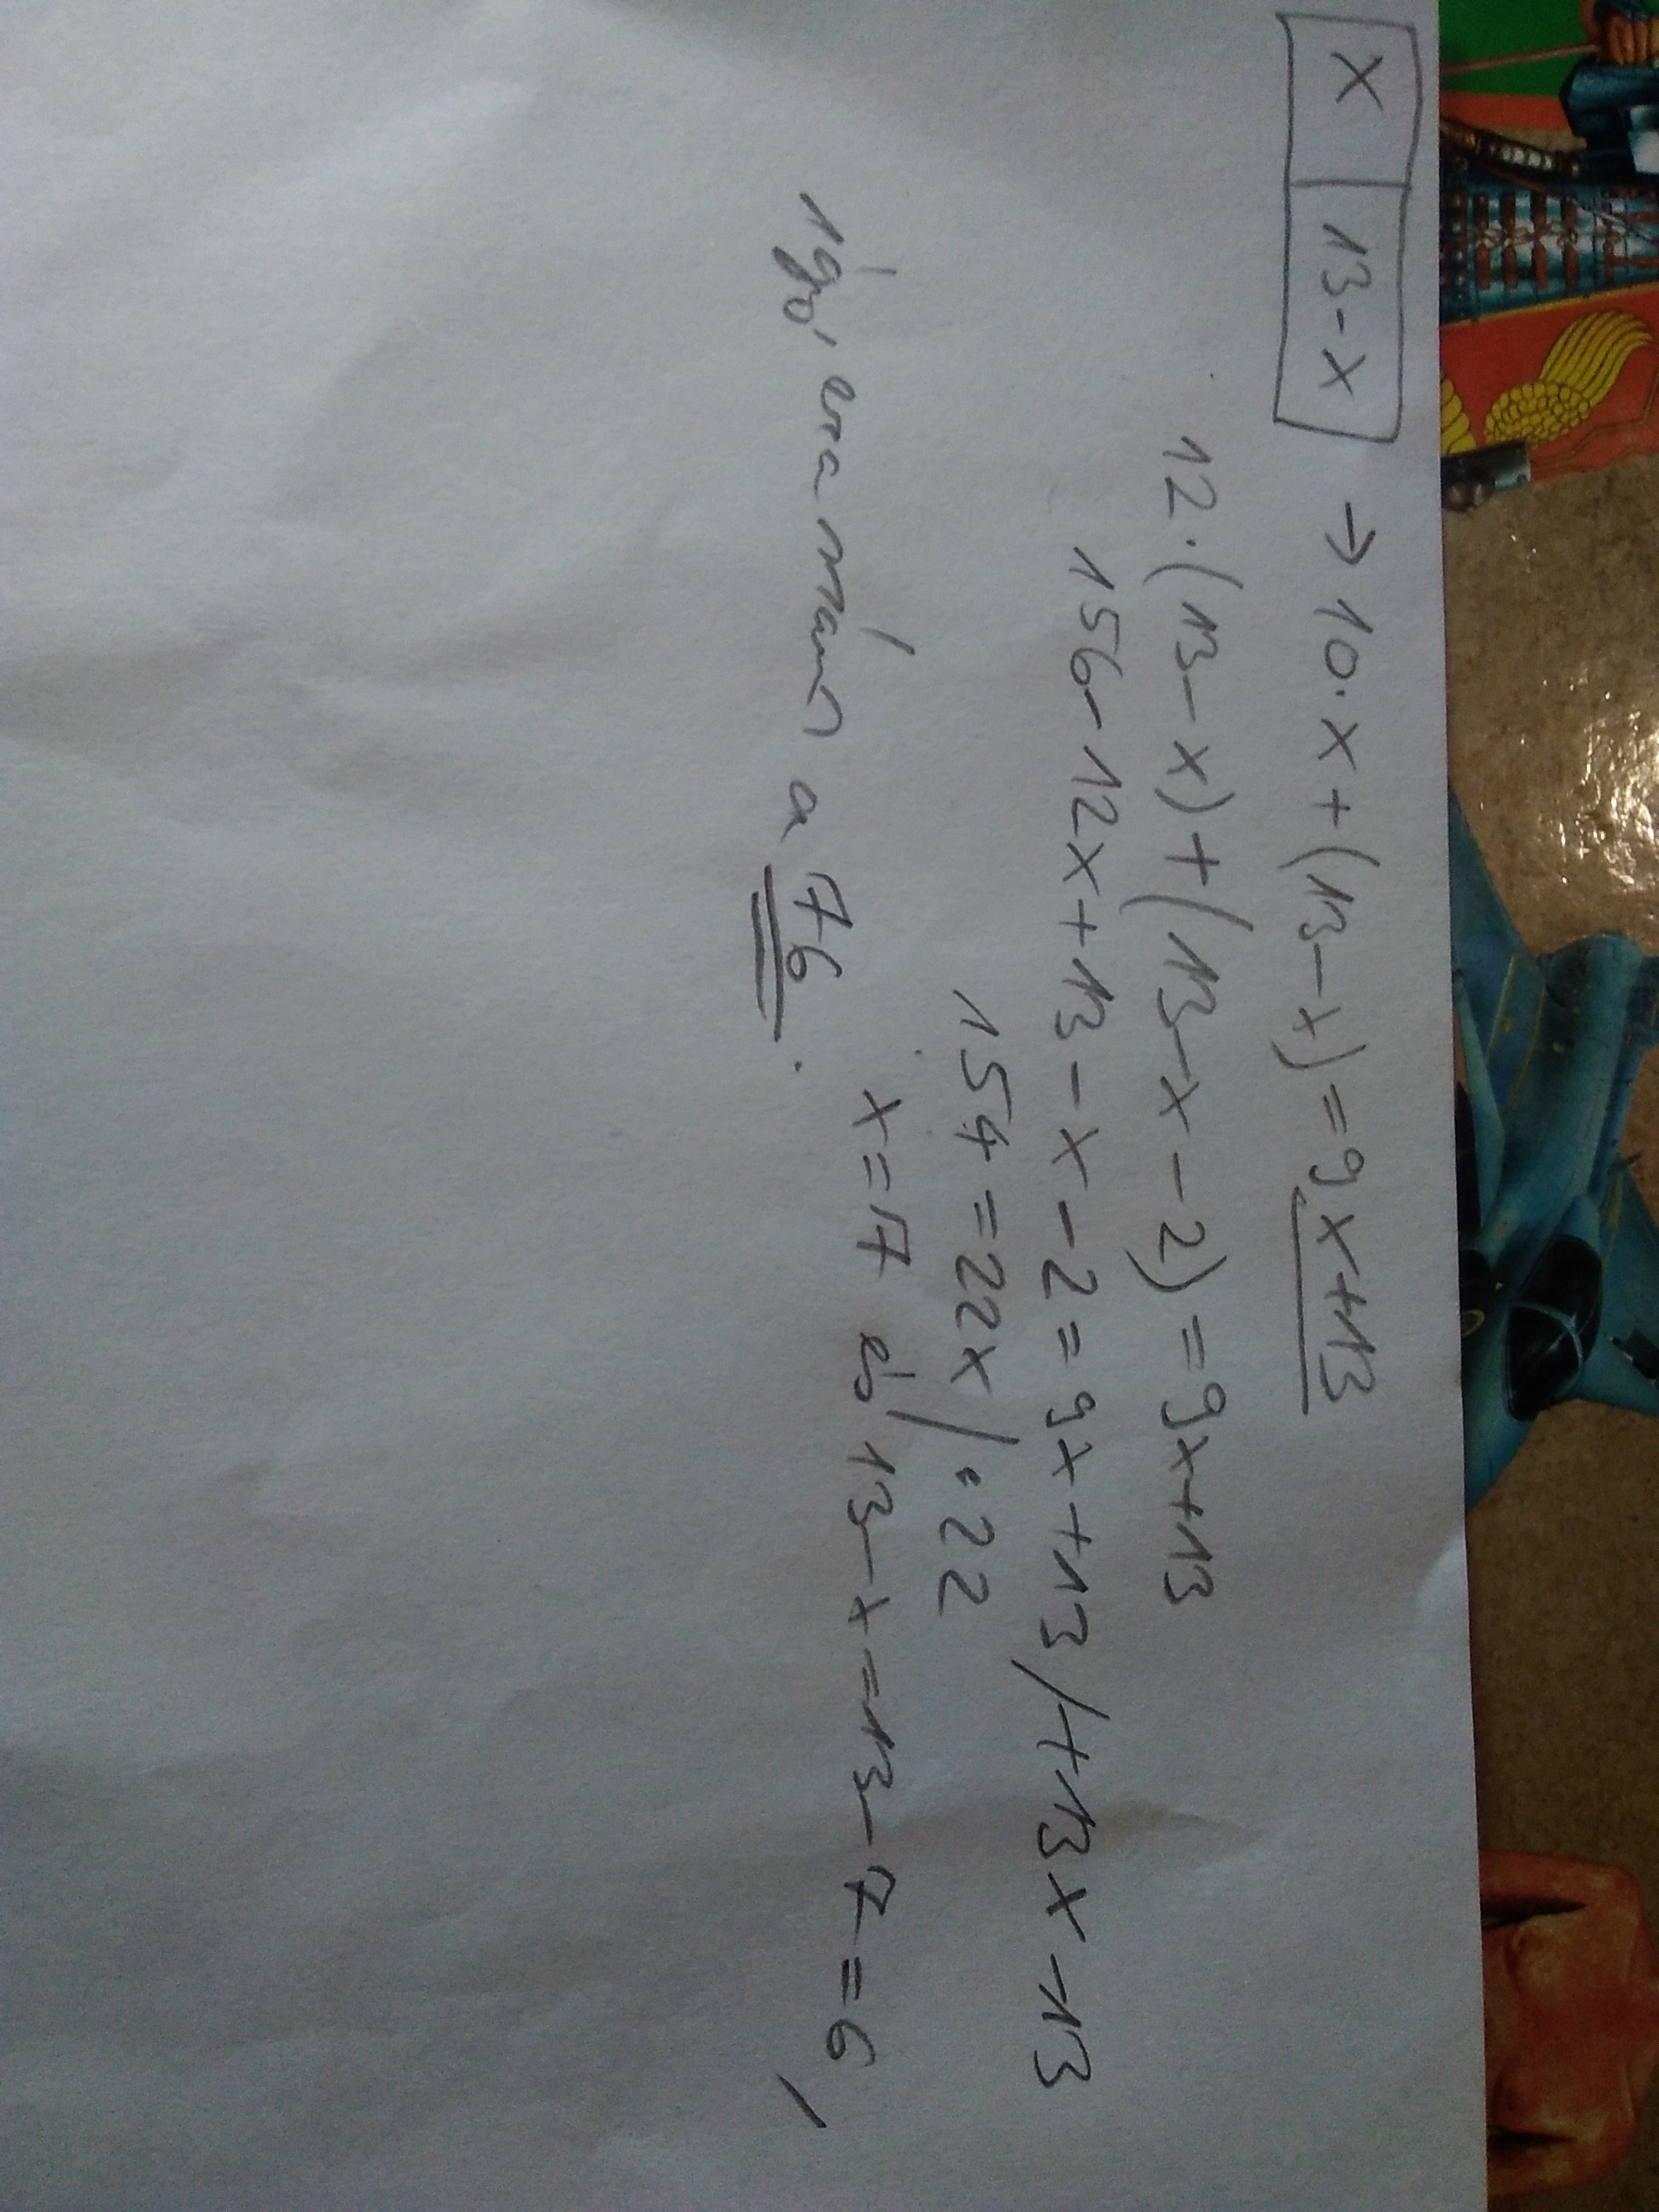 x | 13-x → 10·x+(13-x)=9x+13
12·(13-x)+(13-x-2)=9x+13
156-12x+13-x-2=9x+13/+13x-13
154=22x/:22
x=7 és 13-x=13-7=6,
így a szám a 76.